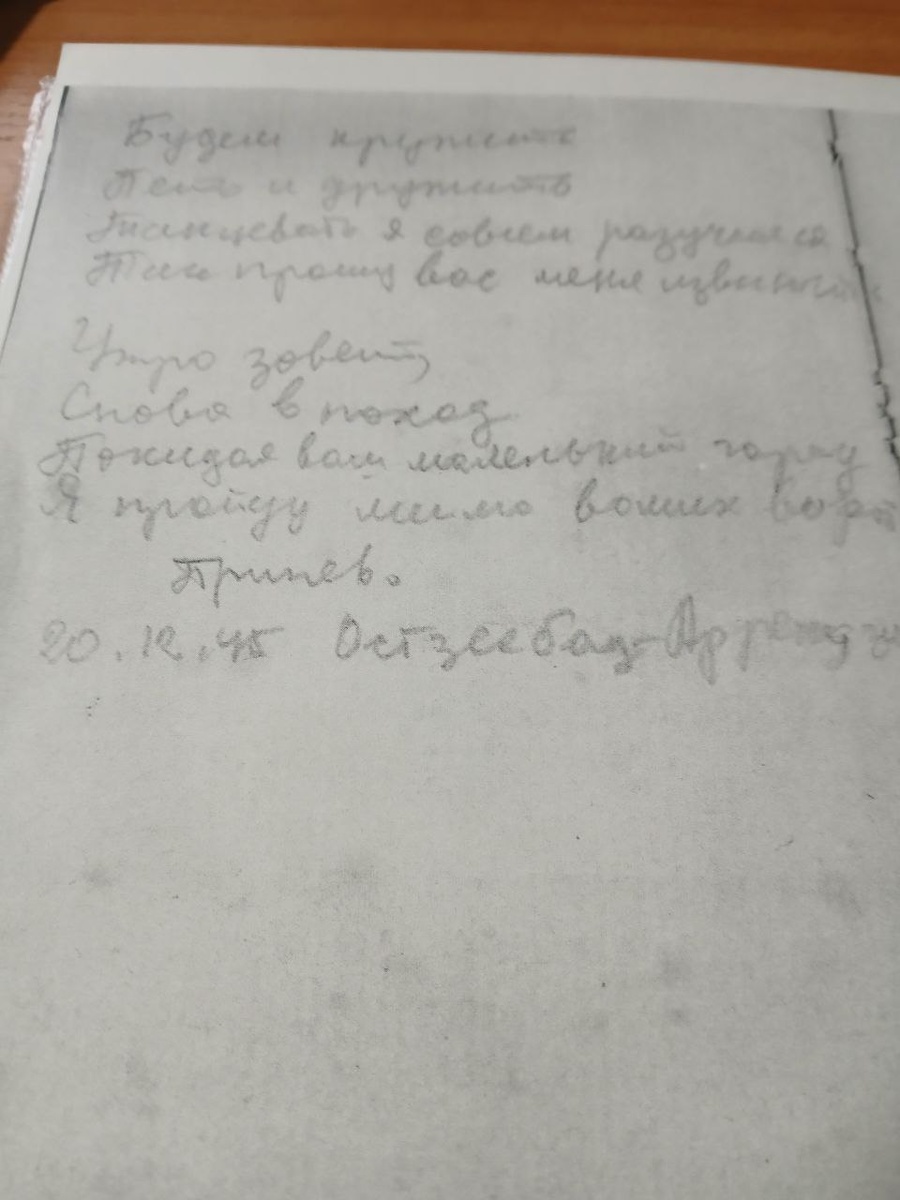 Будем кружить
Петь и дружить
Танцевать я совсем разучился
Так прошу вас меня извинить
Утро зовет,
Снова в поход
Покидая ваш маленький город
Я пройду мимо ваших ворот
Припев.
20.12.45 Остзеебад-